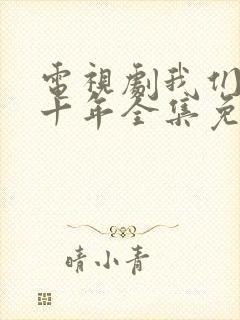 電視劇我们
十年全集免
晴小青